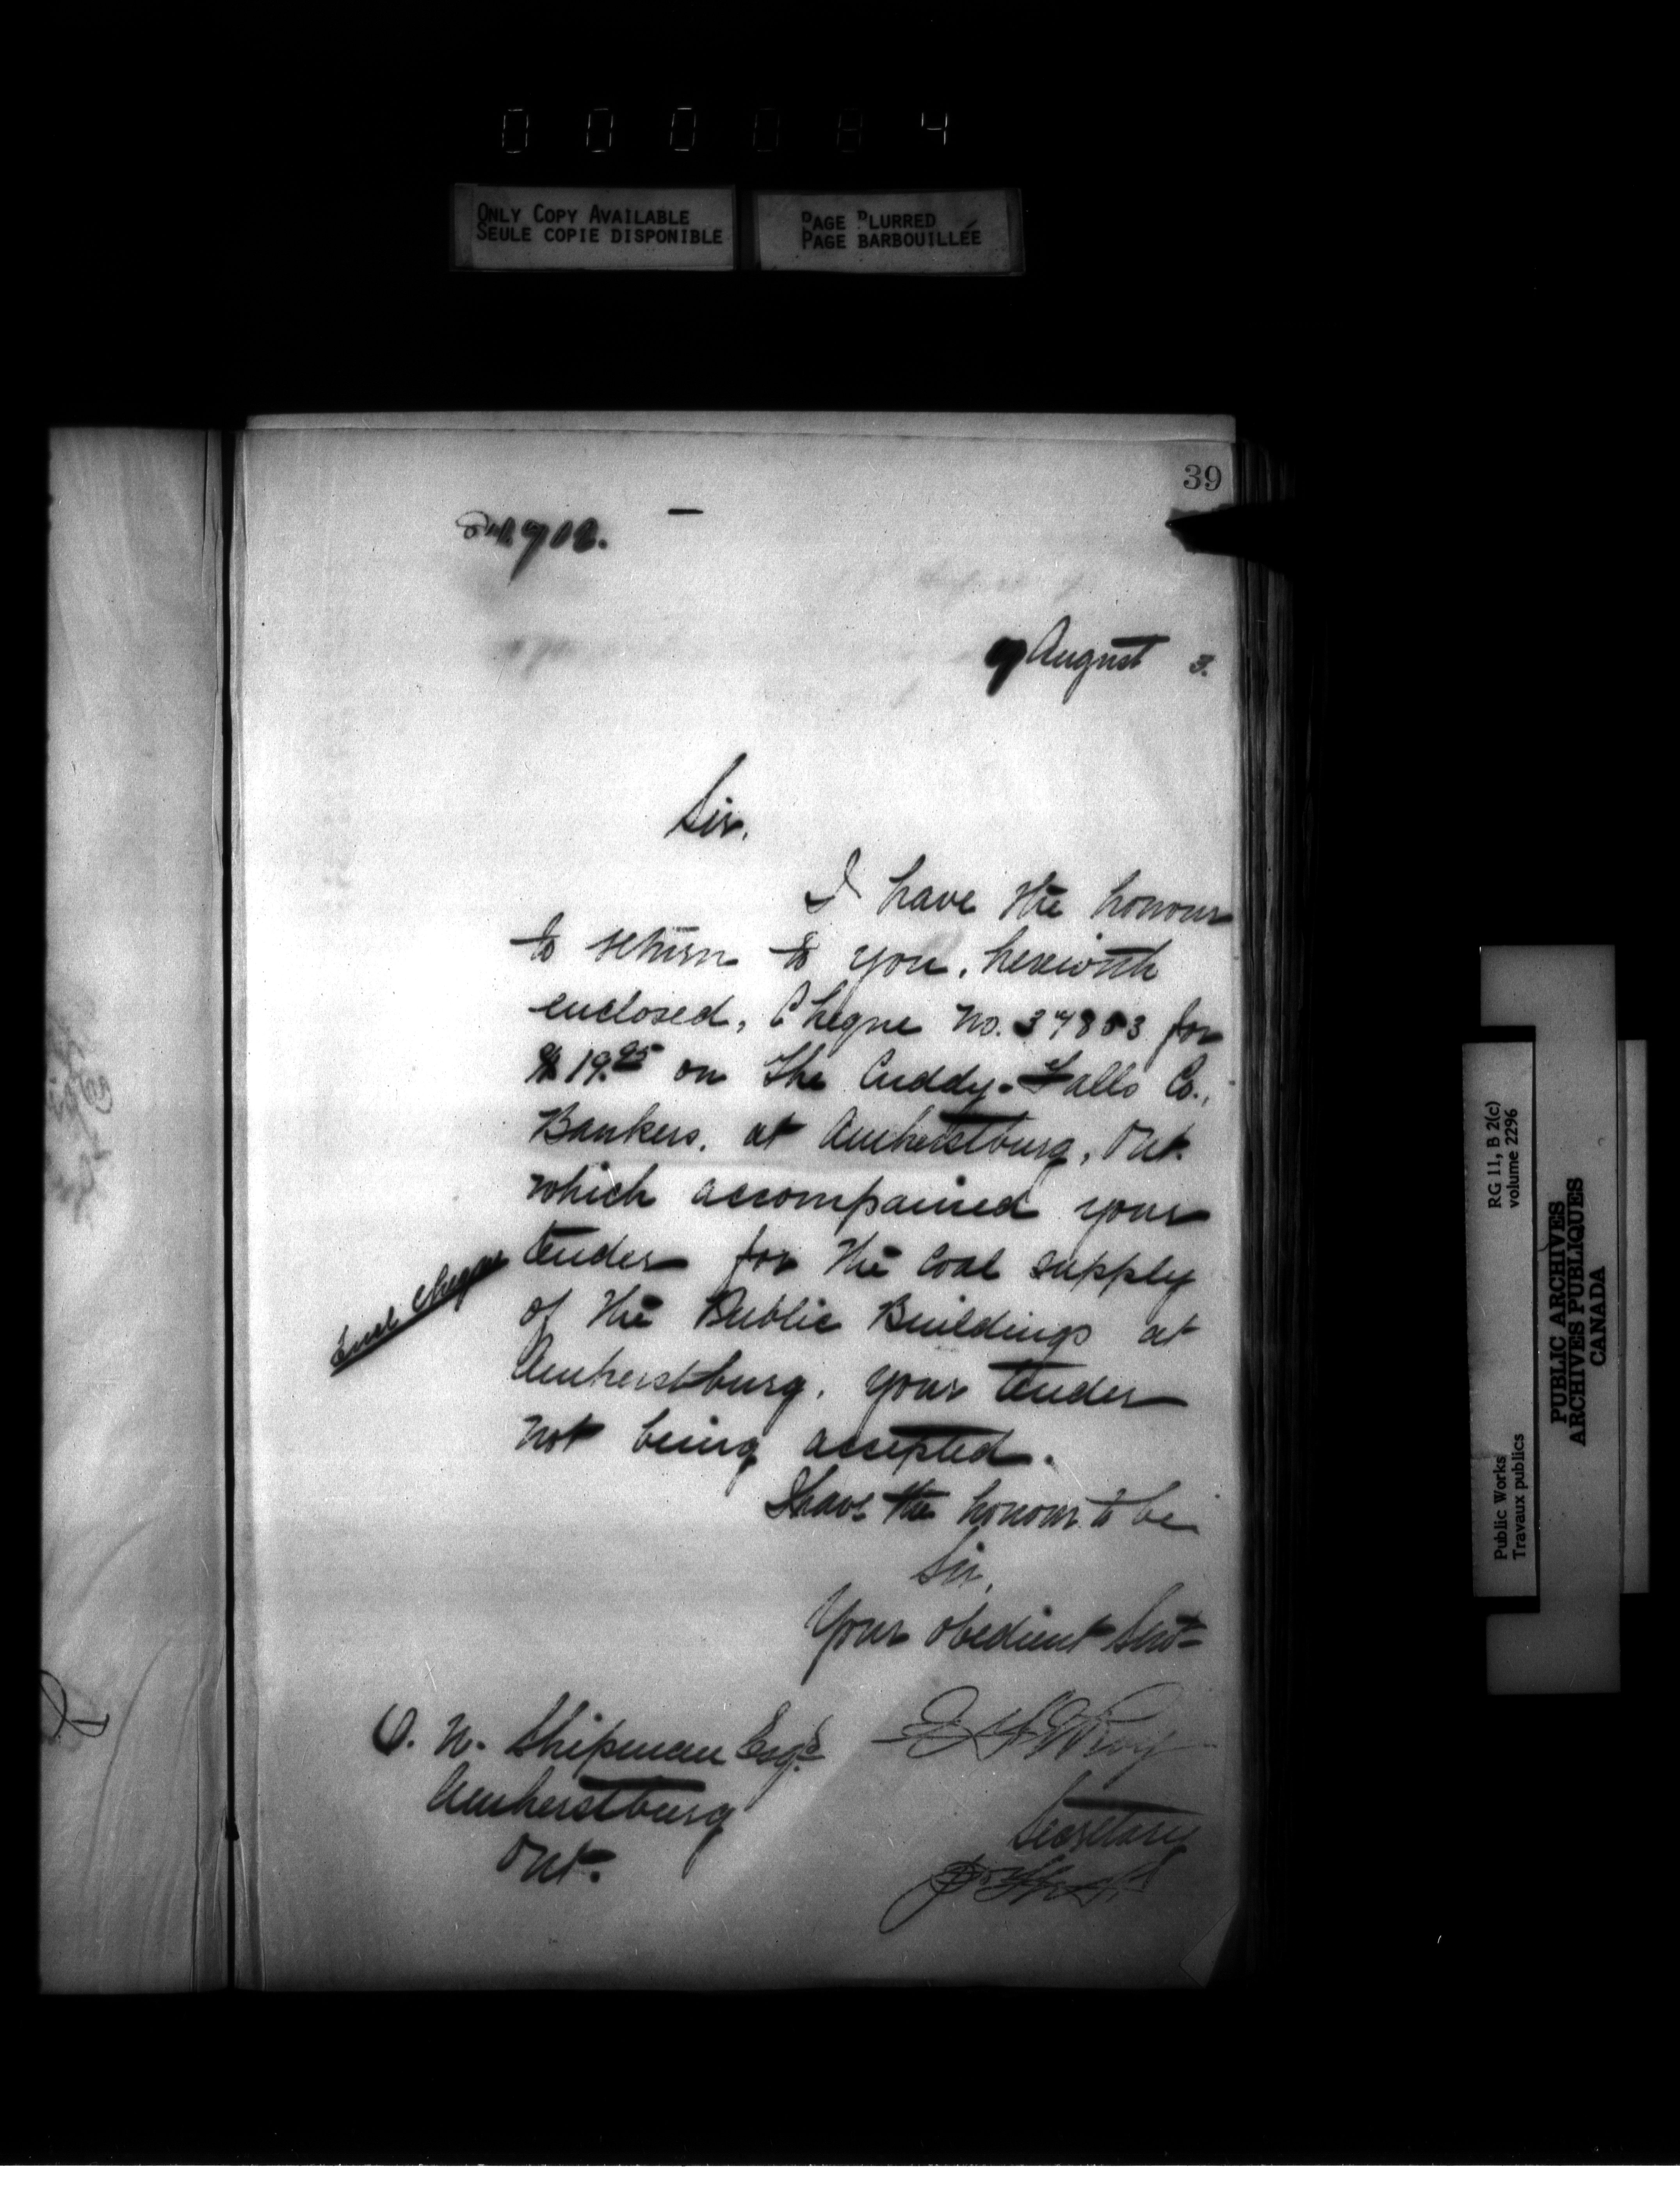 000084
ONLY COPY AVAILABLE
SEULE COPIE DISPONIBLE
PAGE BLURRED
PAGE BARBOUILLÉE
39
August 3.
Sir,
I have the honour
to return to you, herewith
enclosed, Cheque No. for
$19.95 on The Cuddy-Falls Co.,
Bankers, at Amherstburg, Ont.
which accompained your
tender for the Coal supply
of the Public Buildings at
Amherstburg, your tender
not being accepted.
Encl cheque
I have the honour to be
Sir,
Your obedient Servt
Secretary
N. Shipman Esqr
Amherstburg
Ont.
RG 11, B 2(c)
volume 2296
Public Works
Travaux publics
PUBLIC ARCHIVES
ARCHIVES PUBLIQUES
CANADA